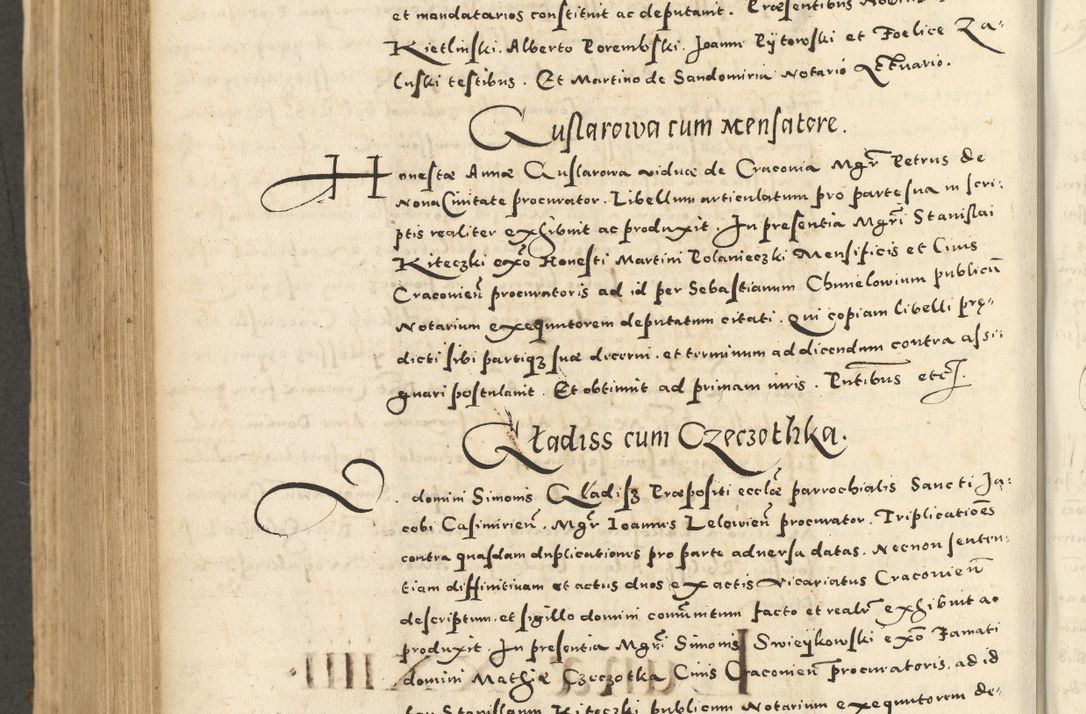 et mandatarios constituit ac deputavit. Præsentibus
Kietlinski. Alberto Porembski. Joanni Rÿtowski et Foelice Za-
luski testibus. Et Martino de Sandomiria Notario Actuario.
Guslarowa cum Mensatore.
Honestæ Annæ Guslarowa viduæ de Cracovia Mgr̃ Petrus de
Nova Civitate procurator. Libellum articulatum pro parte sua in scri-
ptis realiter exhibuit ac produxit. In præsentia Mgr̃i Stanislai
Kiteczki ex͠o Honesti Martini Polanieczki Mensificis et Civis
Cracovien̄ procuratoris ad id per Sebastianum Chmielowium publicū
Notarium exequutorem deputatum citati. Qui copiam libelli præ-
dicti sibi partiqз suæ decerni. et terminum ad dicendum contra assi-
gnari postulavit. Et obtinuit ad primam iuris. Pn̄tibus etc.
Gładiss cum Czeczothka.
V domini Simonis Gładisz Præpositi eccl̄æ parrochialis Sancti Ja-
cobi Casimirien̄. Mgr̃ Joannes Lelowien̄ procurator. Triplicatioēs
contra quasdam duplicationes pro parte adversa datas. Necnon senten-
tiam diffinitivam et actus duos ex actis Vicariatus Cracovien̄
descriptum. et sigillo domini com̄unitum facto et realr̃ exhibuit ac
produxit. In præsentia Mgr̃i Simonis Swieÿkowski ex͠o Famati
domini Mathiæ Czeczotka Civis Cracovien̄ procuratoris. ad id
per Stanislaum Kiteczki publicum Notarium exequutorem de-